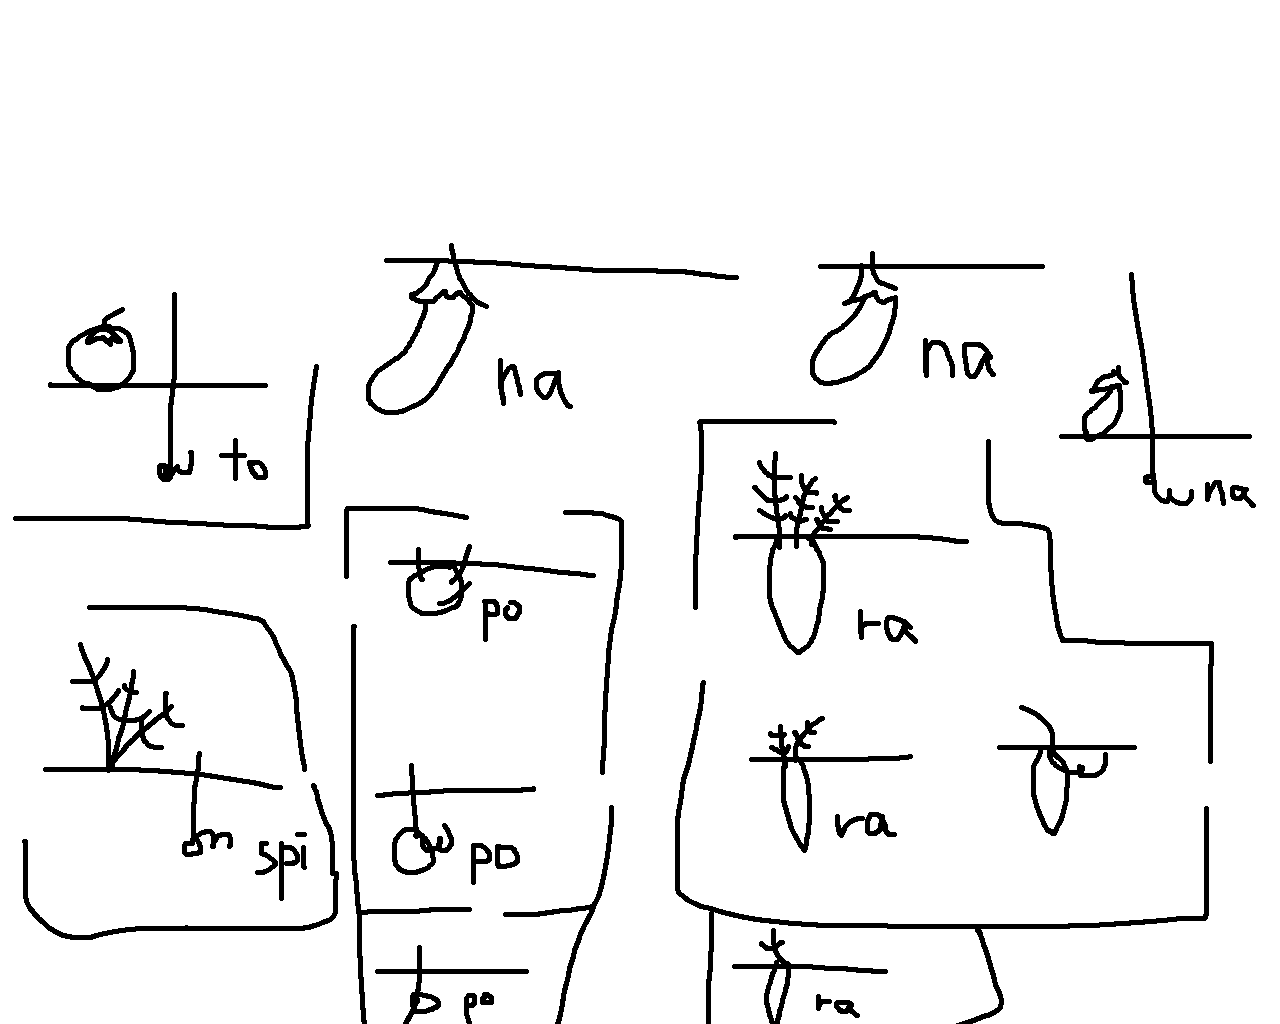 na
na
to
na
po
ra
spi
po
ra
po
ra